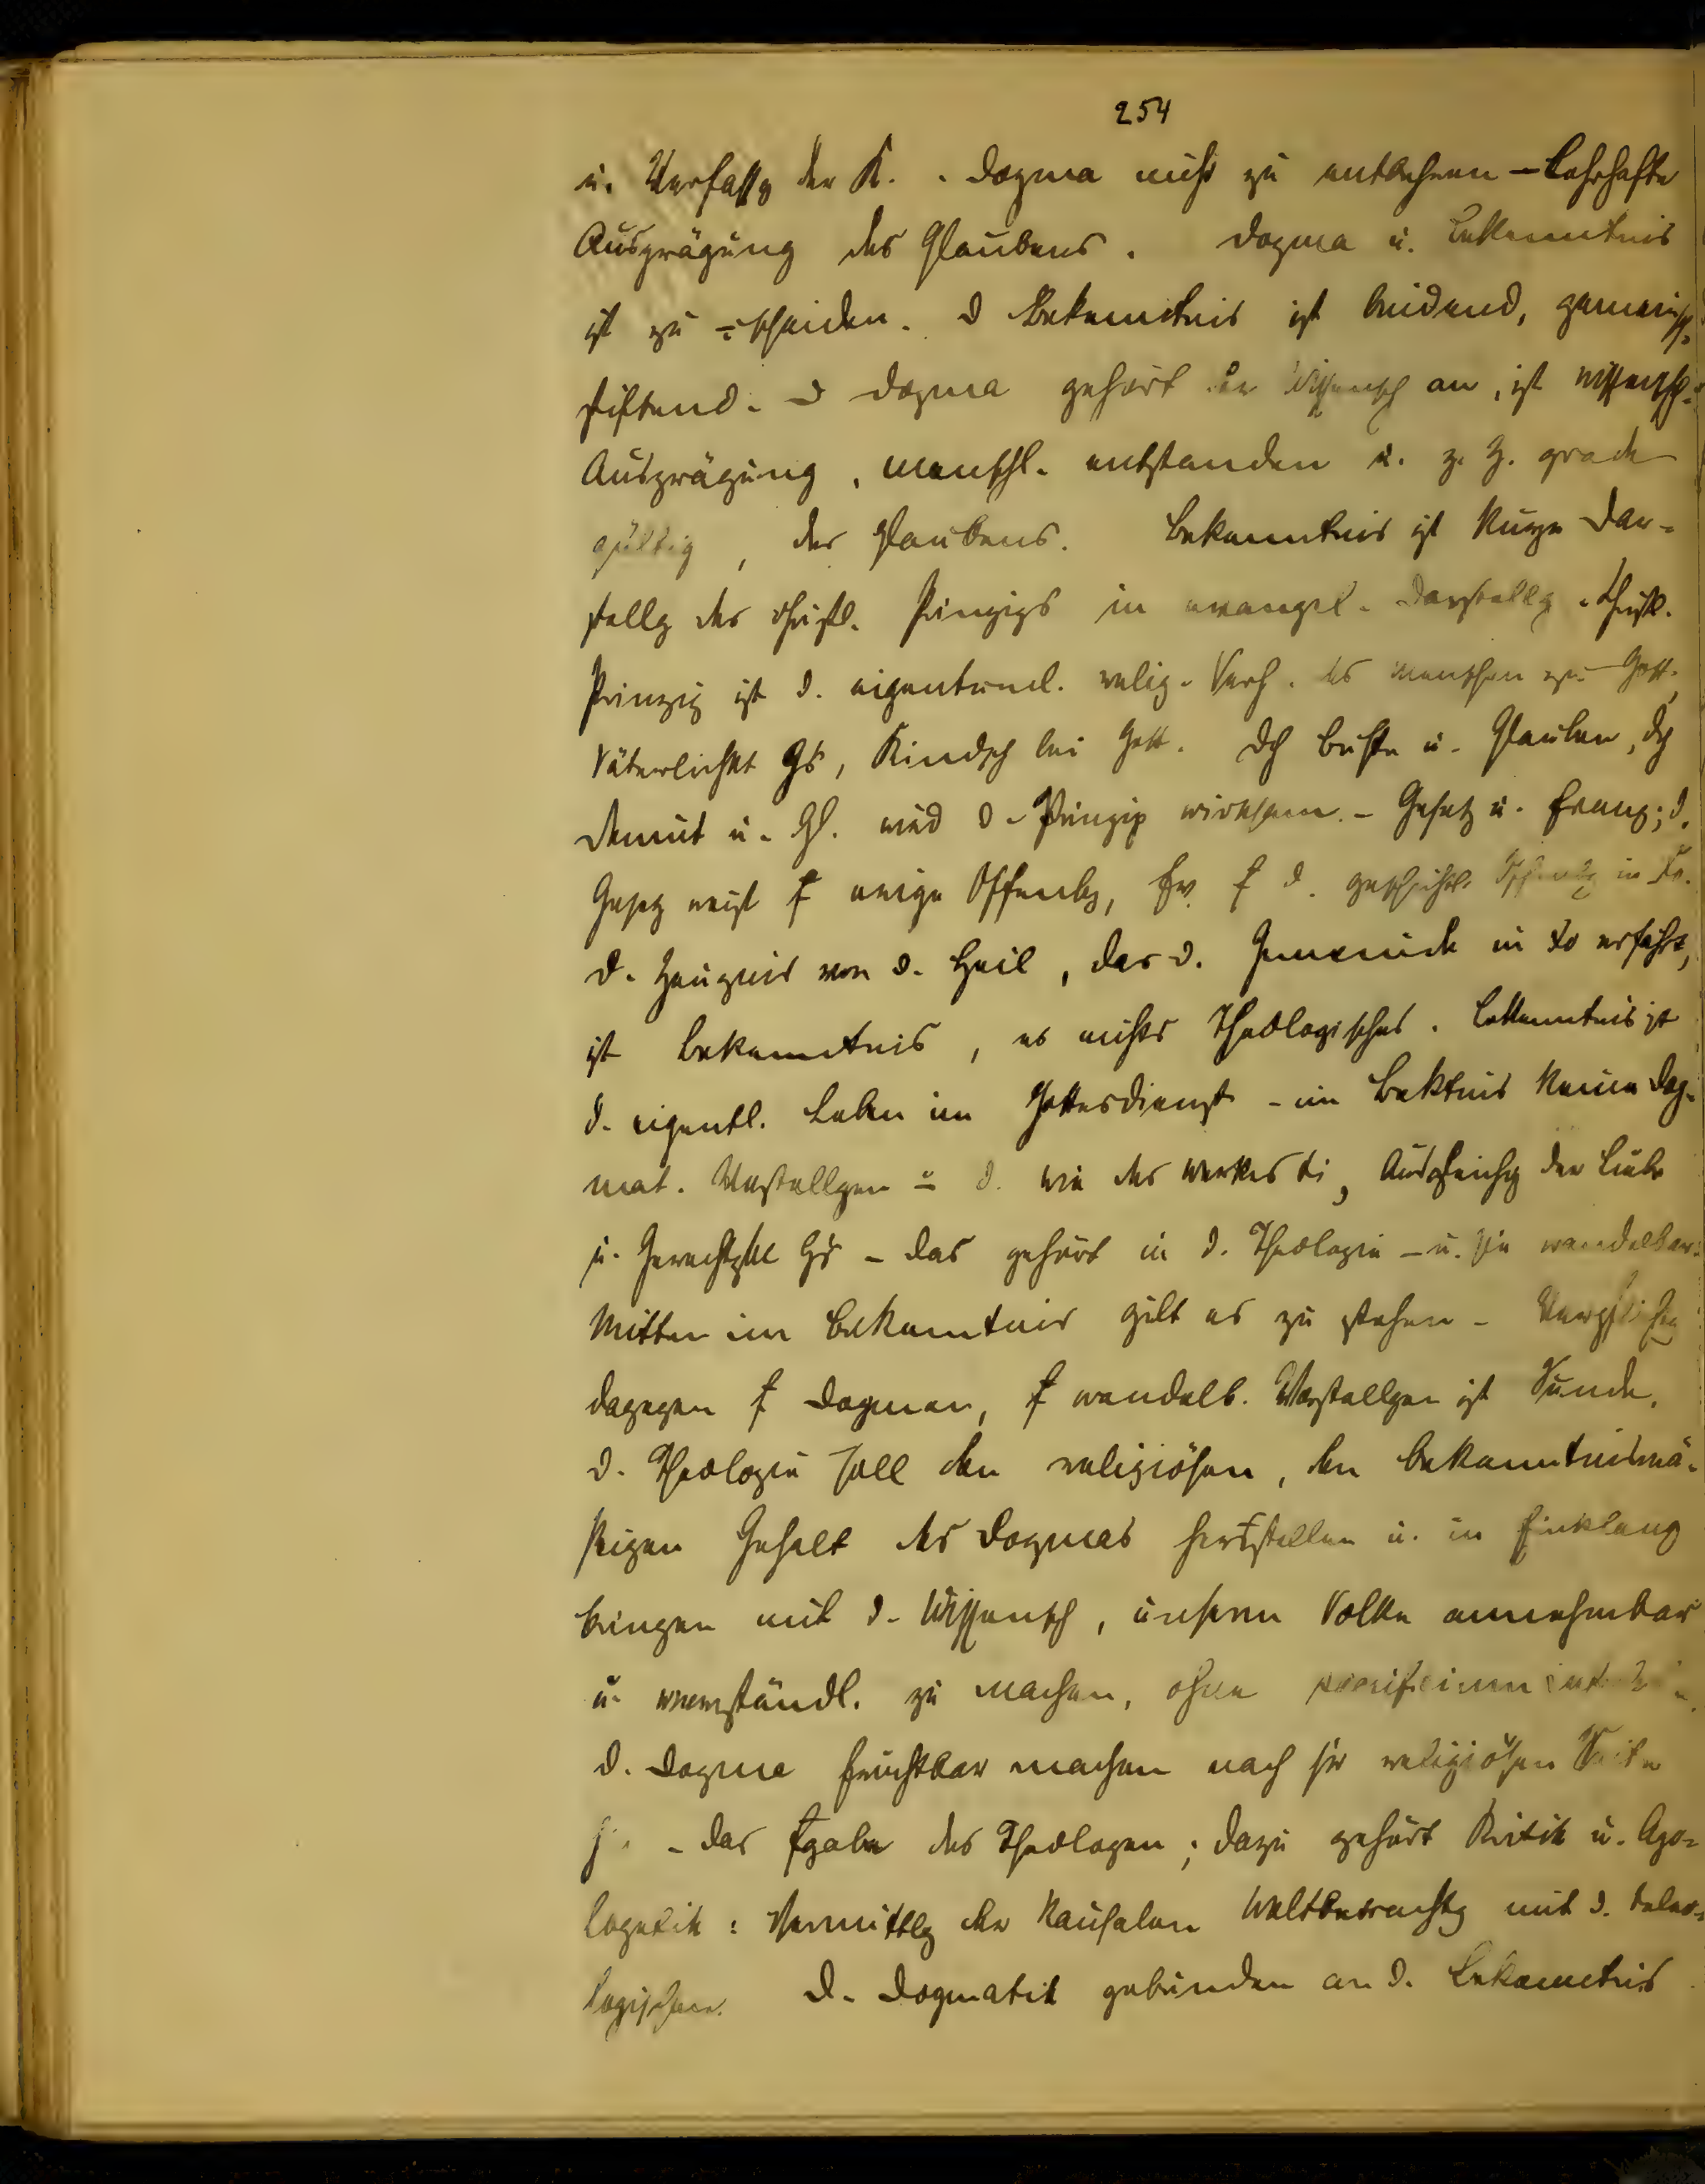 254
u. Verfassg der K. . Dogma nicht zu entbehren – Lehrhafte
Ausprägung des Glaubens. Dogma u. Bekenntnis
ist zu ÷scheiden. D Bekenntnis ist bindend, gemeinsch.
stiftend. D Dogma gehört der Wissensch an, ist wissensch.
Ausprägung, menschl. entstanden u. z. Z. grade
gültig, des Glaubens. Bekenntnis ist kurze Dar-
stellg des christl. Prinzips in evangel. Darstellg. Christl.
Prinzip ist d. eigentüml. relig. Verh. des Menschen zu Gott,
Väterlichkt Gs, Kindsch bei Gott. Dch Buße u. Glauben, dch
Demut u. Gl. wird d. Prinzip wirksam. – Gesetz u. Evang; d.
Gesetz weist f ewige Offenbg, Ev. f d. geschichtl. Offenbg in
d. Zeugnis von d. Heil, das d. Gemeinde in erfährt,
ist Bekenntnis, es nichts Theologisches. Bekenntnis ist
d. eigentl. Leben im Gottesdienst – im Bektnis keine Dog-
mat. Vorstellgen ÷ d. wie des Werkes, Ausgleichg der Liebe
u. Gerechtgkt Gs – das gehört in d. Theologie – u. sie wandelbar.
Mitten im Bekenntnis gilt es zu stehen – Verpflichtg
dagegen f Dogmen, f wandelb. Vorstellgen ist Sünde.
D. Theologie soll den religiösen, den bekenntnismä-
ßigen Gehalt des Dogmas herstellen u. in Einklang
bringen mit d. Wissensch, unserm Volke annehmbar
u. verständl. zu machen, ohne
D. Dogma fruchtbar machen nach sr religiösen Seite
– das fgabe des Theologen; dazu gehört Kritik u. Apo-
logetik: Vermittlg der kausalen Weltbetrachtg mit d. teleo-
logischen. D. Dogmatik gebunden an d. Bekenntnis